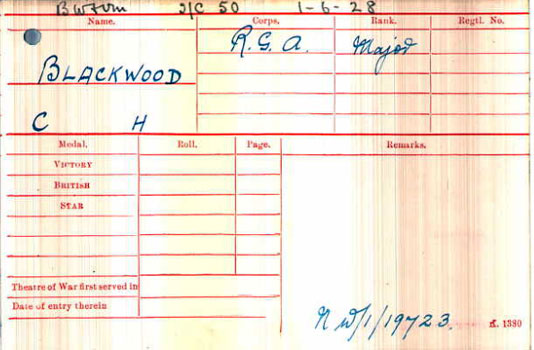 BWVM S/C 50 1-6-28
Name. Corps. Rank. Regtl. No.
R.G.A. Major
BLACKWOOD
C H
Medal. Roll. Page. Remarks.
VICTORY
BRITISH
STAR
Theatre of War first served in
Date of entry therein
NW/1/19723.
K. 1380